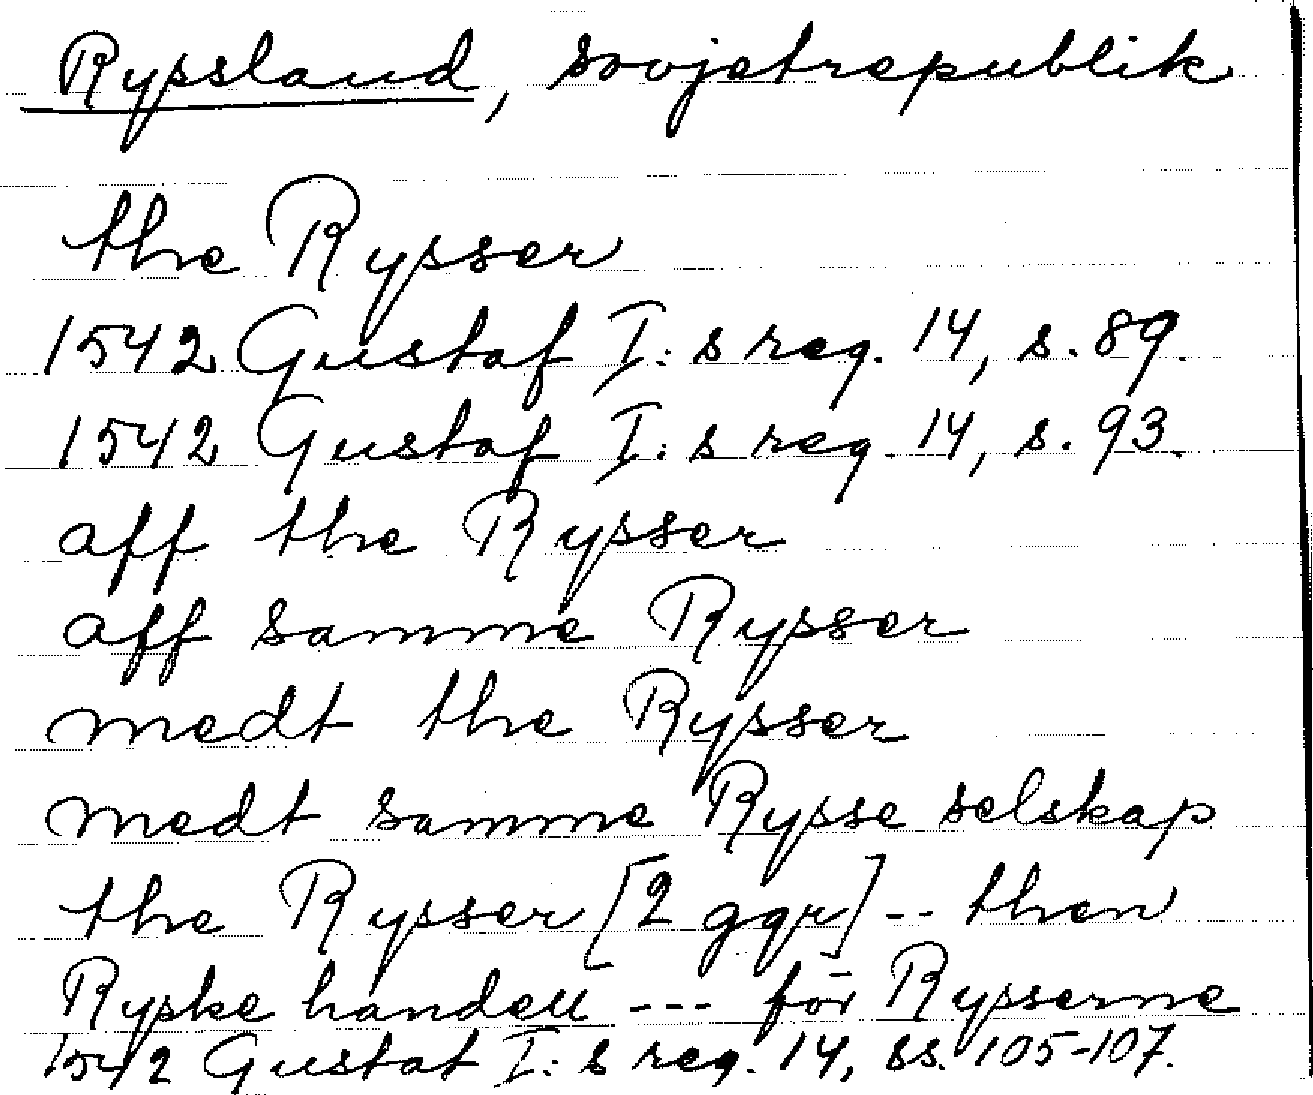 Rypsland, sovjetrepublik
the Rysser
1542 Gustaf I:s reg. 14, s. 89.
1542 Gustaf I:s reg. 14, s. 93.
aff the Rysser
aff samme Rysser
medt the Rysser
medt samme Rysse selskap
the Rysser [2 ggr] -- then
Ryske handell --- för Rysserne
1542 Gustaf I:s reg. 14, ss. 105-107.